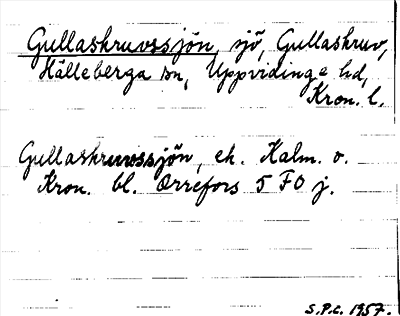 Gullaskruvssjön, sjö, Gullaskruv,
Hälleberga sn, Uppvidinge hd,
Kron. l.
Gullaskruvssjön, ek. Kalm. o.
Kron. bl. Orrefors 5 F O j.
S.P.C. 1957.